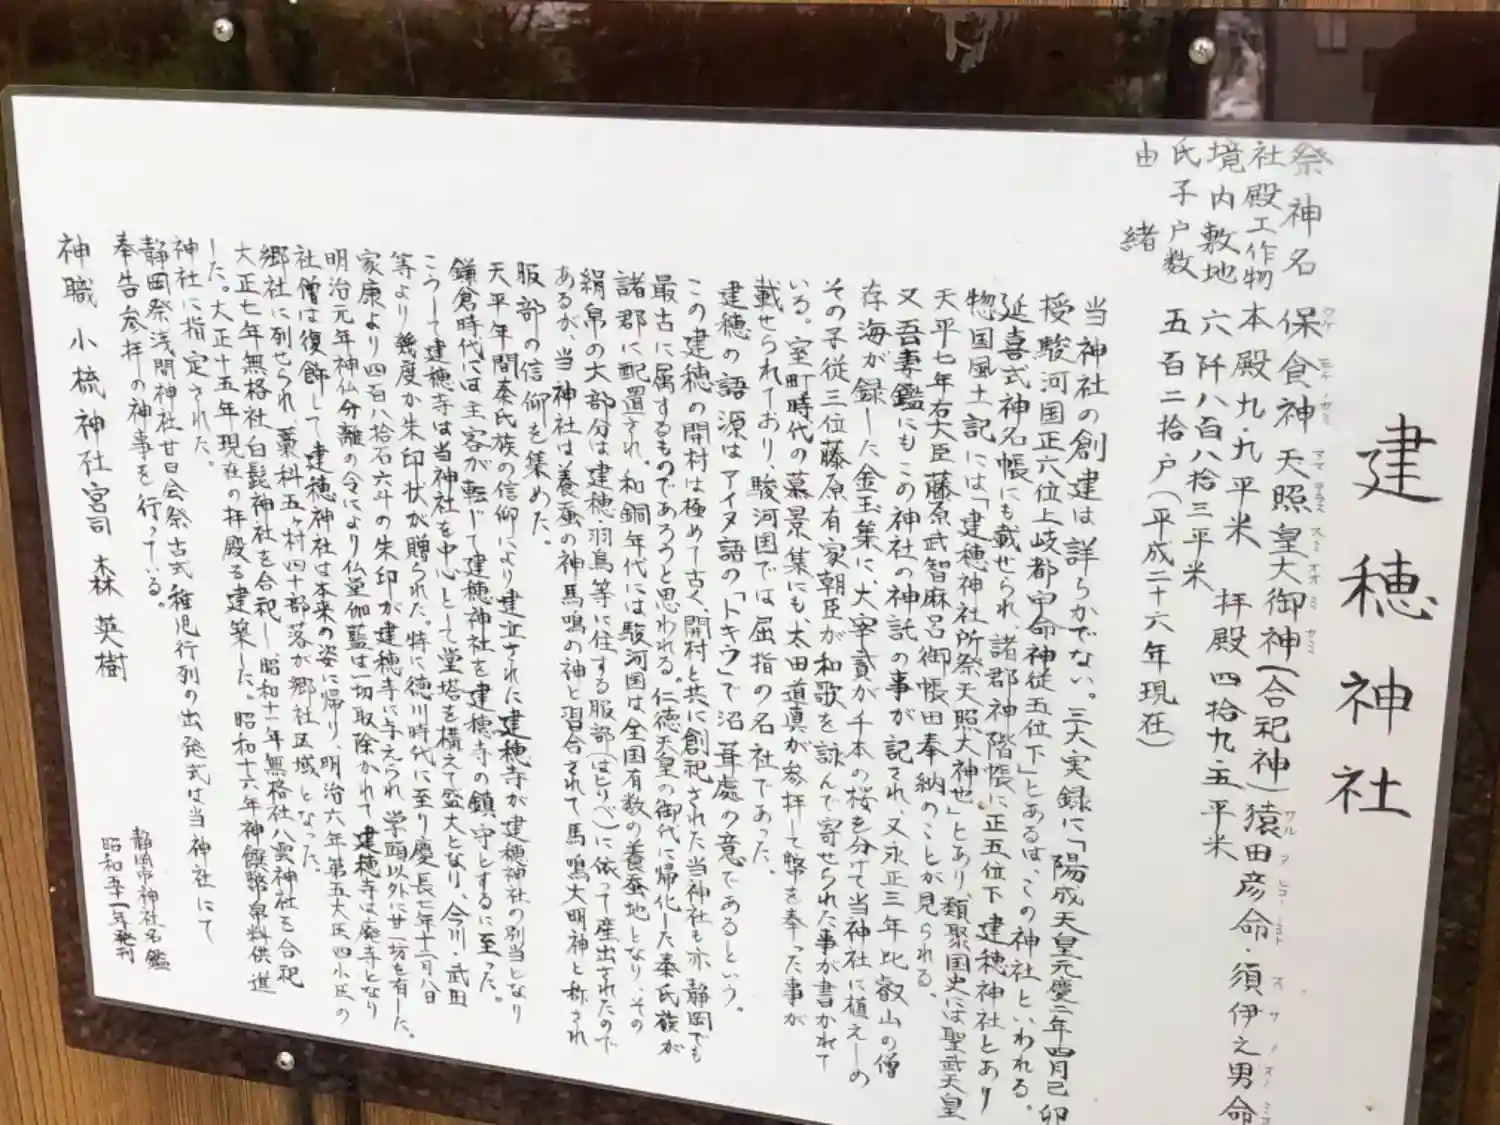 建穂神社
祭神名　保食神　天照皇大御神(合祀神)猿田彦命・須伊之男命
ウケ　モチノカミ　アマ　テラス　スミ　オオ　ミ　カミ　サル　タ　ヒコノ　ミコト　ス　サ　ノ　オノ　ミコ
社殿工作物　本殿九・九平米　拝殿四拾九・五平米
境内敷地　六阡八百八拾三平米
氏子戸数　五百二拾戸(平成二十六年現在)
由緒
当神社の創建は詳らかでない。三大実録に「陽成天皇元慶二年四月己卯
授駿河国正六位上岐都守命神従五位下」とあるは、この神社といわれる。
延喜式神名帳にも載せられ、諸郡神階帳に正五位下建穂神社とあり
惣国風土記には「建穂神社所祭天照大神也」とあり、類聚国史には聖武天皇
天平七年右大臣藤原武智麻呂御帳田奉納のことが見られる。
又吾妻鑑にもこの神社の神託の事が記され、又永正三年比叡山の僧
存海が録した金玉集に、大宰貳が千本の桜を分けて当神社に植えしめ
その子従三位藤原有家朝臣が和歌を詠んで寄せられた事が書かれて
いる。室町時代の慕景集にも、太田道真が参拝して幣を奉った事が
載せられており、駿河国では屈指の名社であった。
建穂の語源はアイヌ語の「トキラ」で沼葺處の意であるという。
この建穂の開村は極めて古く、開村と共に創祀された当神社も亦静岡でも
最古に属するものであろうと思われる。仁徳天皇の御代に帰化した秦氏族が
諸郡に配置され、和銅年代には駿河国は全国有数の養蚕地となり、その
絹帛の大部分は建穂・羽鳥等に住する服部(はとりべ)に依って産出されたので
あるが、当神社は養蚕の神馬鳴の神と習合されて馬鳴大明神と称され
服部の信仰を集めた。
天平年間秦氏族の信仰により建立されに建穂寺が建穂神社の別当となり
鎌倉時代には主客が転じて建穂神社を建穂寺の鎮守とするに至った。
こうして建穂寺は当神社を中心として堂塔を構えて盛大となり、今川・武田
等より幾度か朱印状が贈られた。特に徳川時代に至り慶長七年十二月八日
家康より四百八拾石六斗の朱印が建穂寺に与えられ学頭以外に廿一坊を有した。
明治元年神仏分離の令により仏堂伽藍は一切取除かれて建穂寺は廃寺となり
社僧は復飾して建穂神社は本来の姿に帰り、明治六年第五大区四小区の
郷社に列せられ、藁科五ヶ村四十部落が郷社区域となった。
大正七年無格社白髭神社を合祀し、昭和十一年無格社八雲神社を合祀
した。大正十五年現在の拝殿を建築した。昭和十六年神饌幣帛料供進
神社に指定された。
静岡祭浅間神社廿日会祭古式稚児行列の出発式は当神社にて
奉告参拝の神事を行っている。
神職　小梳神社宮司　森　英樹
静岡市神社名鑑
昭和五一年発刊